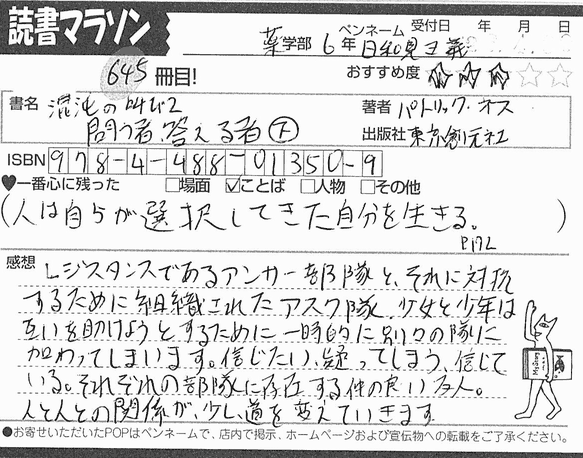 読書マラソン
薬学部 6年 ペンネーム 日和見主義 受付日 年 月 日
645冊目!
おすすめ度 ★★★☆☆
書名 混沌の叫び2
問う者、答える者 下
著者 パトリック・ネス
出版社 東京創元社
ISBN 978-4-488-01350-9
♥一番心に残った □場面 ☑ことば □人物 □その他
(人は自らが選択してきた自分を生きる。)
P172
感想 レジスタンスであるアンサー部隊と、それに対抗
するために組織されたアスク隊。少女と少年は
互いを助けようとするために一時的に別々の隊に
加わってしまいます。信じたい、疑ってしまう、信じて
いる。それぞれの部隊に存在する仲の良い友人。
人と人との関係が、少し、道を変えていきます
●お寄せいただいたPOPはペンネームで、店内で掲示、ホームページおよび宣伝物への転載をご了承ください。